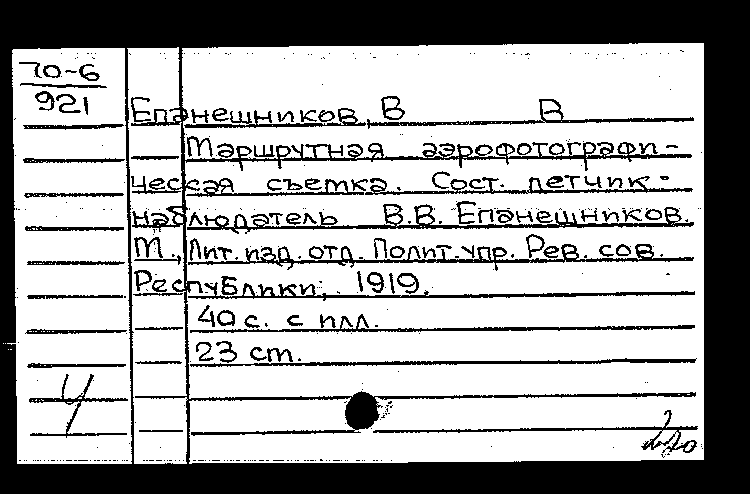 70-6
921
Епанешников, В В
Маршрутная аэрофотографи-
ческая съемка. Сост. летчик-
наблюдатель В.В. Епанешников.
М., Лит. изд. отд. Полит. упр. Рев. сов.
Республики, 1919.
40 с. с илл.
23 cm.